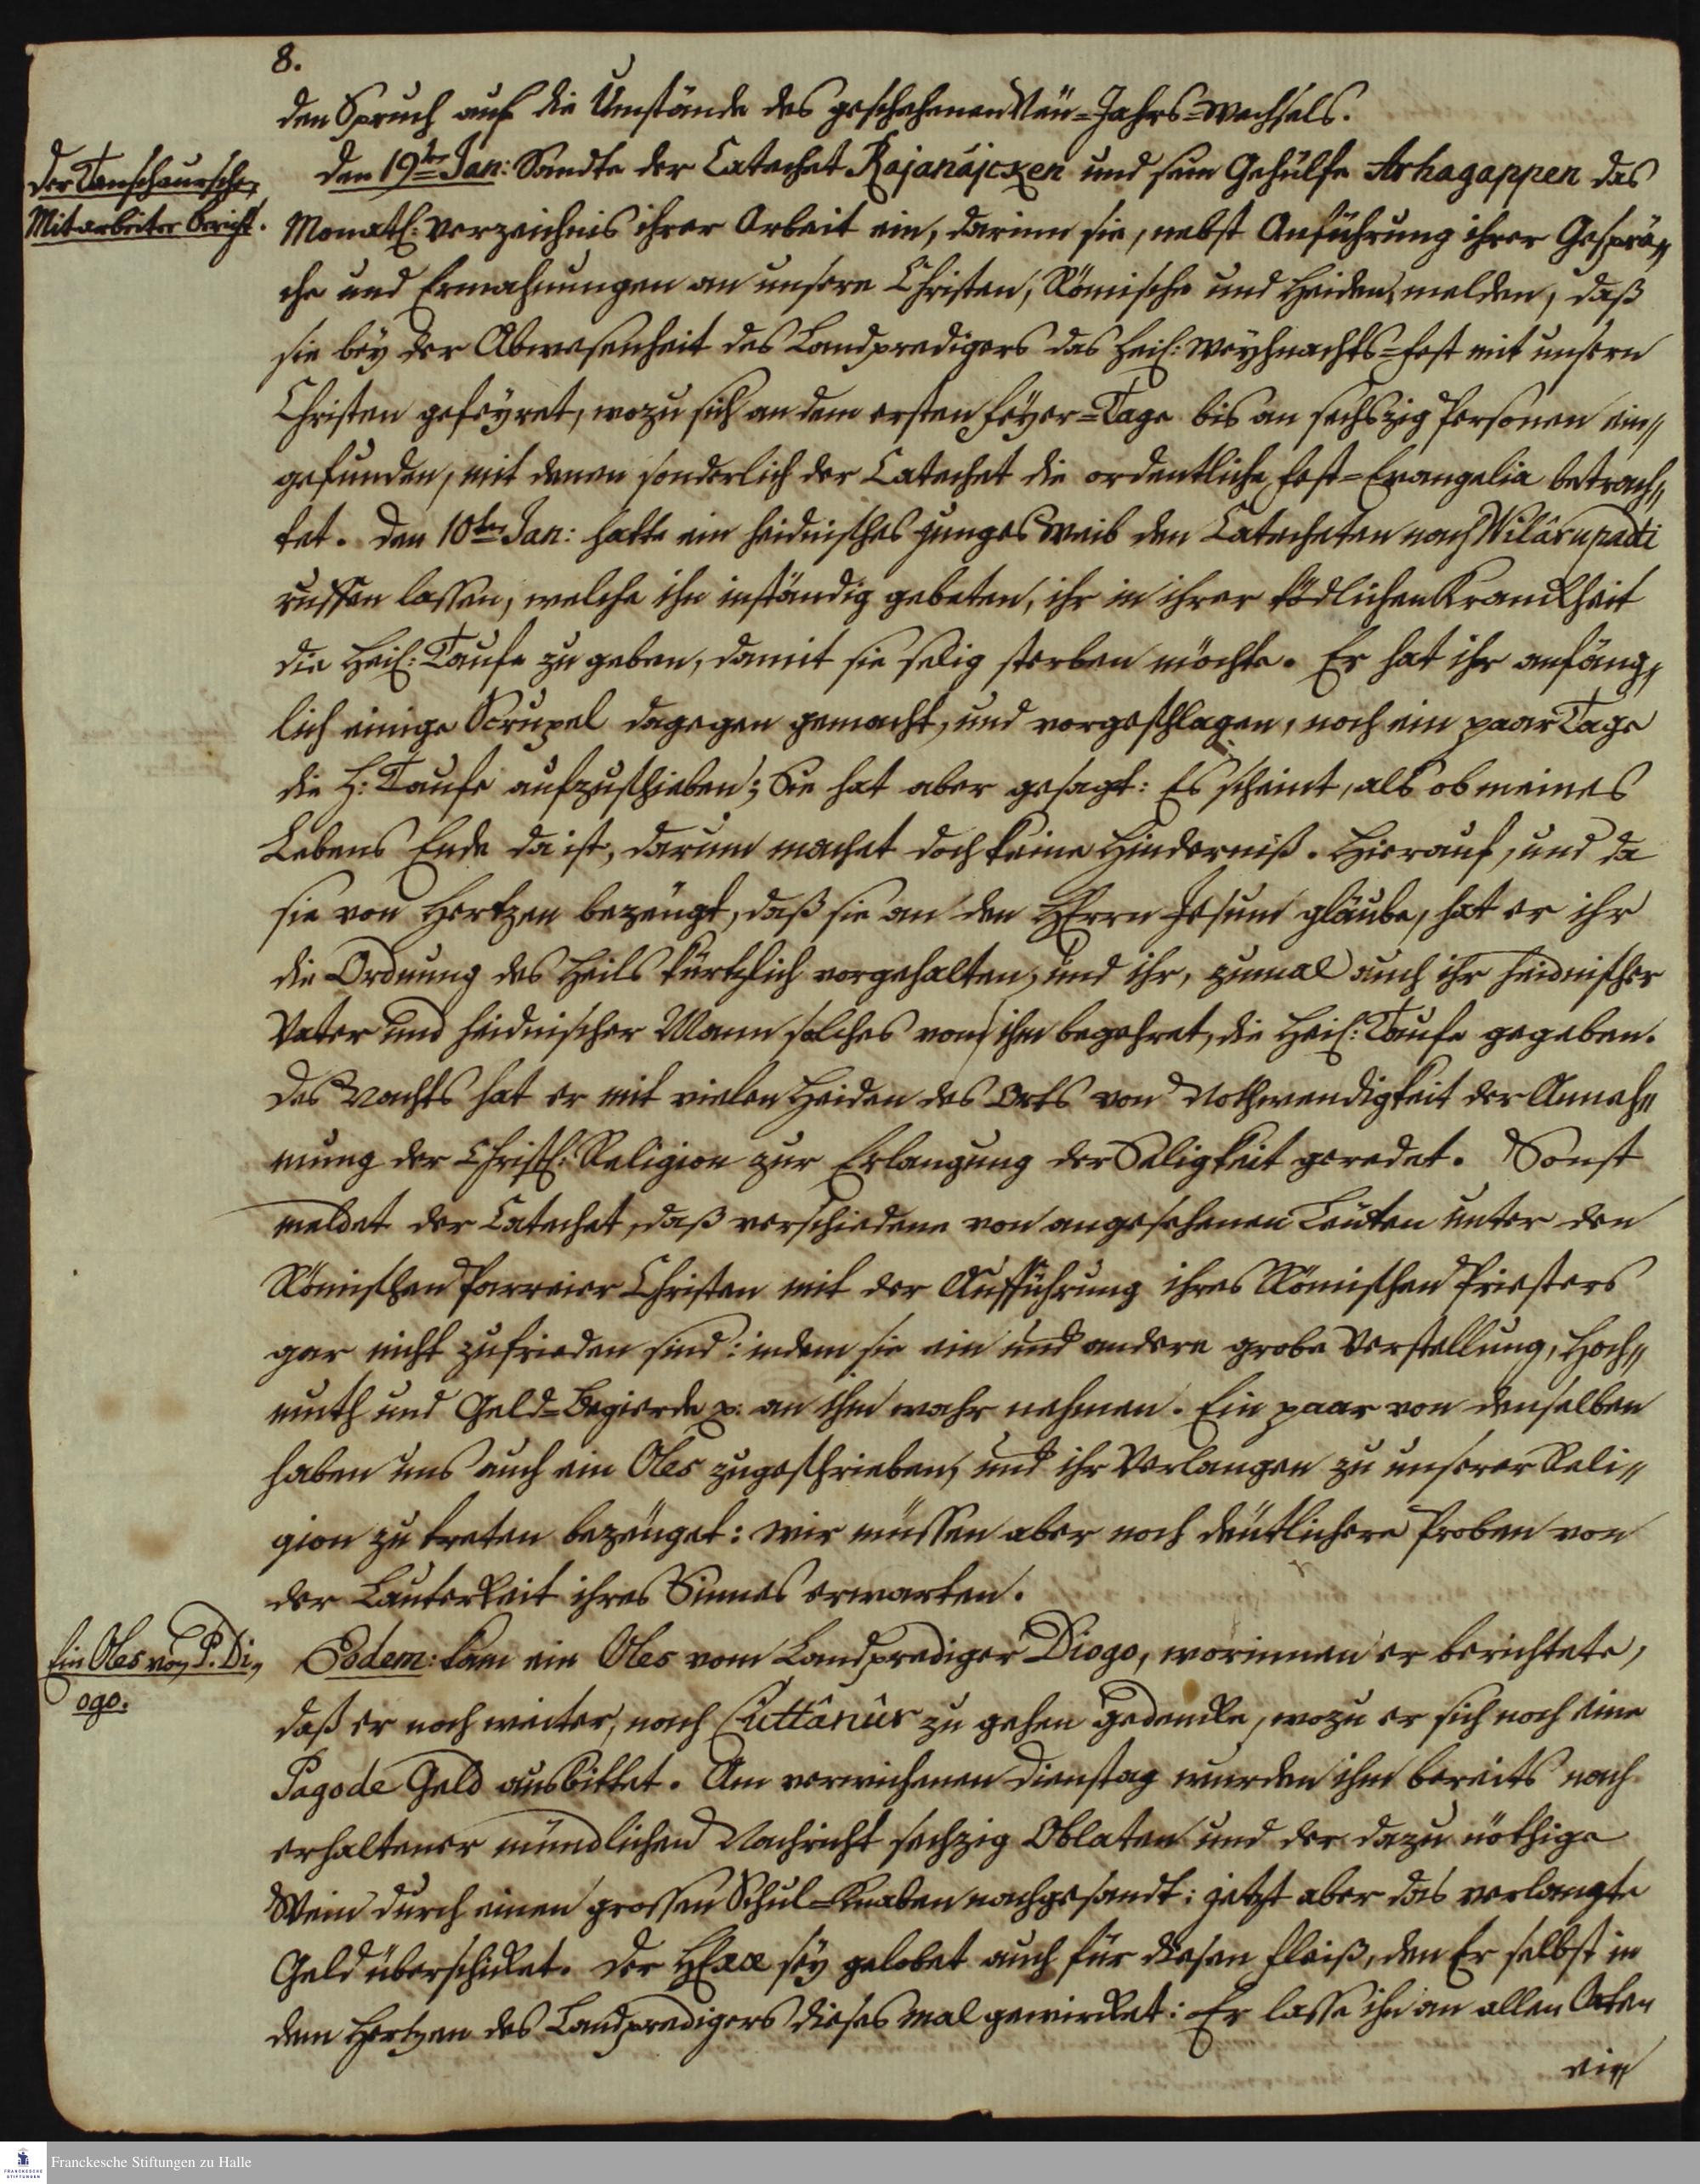 8.
den Spruch auf die Umstände des geschehenen Neü-Jahrs-Wechsels.
Der Tanschaursche,
Mitarbeiter Bericht.
Den 19ten Jan: Sandte der Catechet Rajanájcken und sein Gehülfe Arhagappen das
Monatl: Verzeichnis ihrer Arbeit ein, darinn sie, nebst Anführung ihrer Gesprä„
che und Ermahnungen an unsere Christen, Römische und Heiden, melden, daß
sie bey der Abwesenheit des Landpredigers das Heil: Weyhnachts-Fest mit unsern
Christen gefeyret, wozu sich an dem ersten Feyer-Tage bis an sechszig Personen ein„
gefunden, mit denen sonderlich der Catechet die ordentliche Fest-Evangelia betrach„
tet. Den 10ten Jan: hatte ein heidnisches junges Weib den Catecheten nach Wilârupadti
ruffen lassen, welche ihn inständig gebeten, ihr in ihrer tödlichen Kranckheit
die Heil: Taufe zu geben, damit sie selig sterben möchte. Er hat ihr anfäng„
lich einige Scrupel dagegen gemacht, und vorgeschlagen, noch ein paar Tage
die H: Taufe aufzuschieben; Sie hat aber gesagt: Es scheint, als ob meines
Lebens Ende da ist, darum machet doch keine Hinderniß. Hierauf, und da
sie von Hertzen bezeugt, daß sie an den HErrn Jesum gläube, hat er ihr
die Ordnung des Heils kürtzlich vorgehalten, und ihr, zumal auch ihr heidnischer
Vater und heidnischer Mann solches von ihm begehret, die Heil: Taufe gegeben.
Des Nachts hat er mit vielen Heiden des Orts von Nothwendigkeit der Anneh„
mung der Christl: Religion zur Erlangung der Seligkeit geredet. Sonst
meldet der Catechet, daß verschiedene von angesehenen Leüten unter den
Römischen Parreier Christen mit der Aufführung ihres Römischen Priesters
gar nicht zufrieden sind: indem sie ein und andere grobe Verstellung, Hoch„
muth und Geld-Begierde p. an ihm wahr nehmen. Ein paar von denselben
haben uns auch ein Oles zugeschrieben, und ihr Verlangen zu unserer Reli„
gion zu treten bezeüget: wir müssen aber noch deütlichere Proben von
der Lauterkeit ihres Sinnes erwarten.
Ein Oles von P. Di„
ogo.
Eodem: kam ein Oles vom Landprediger Diogo, worinnen er berichtete,
daß er noch weiter, nach Cúttânûr zu gehen gedencke, wozu er sich noch eine
Pagode Geld ausbittet. Am verwichenen Dienstag wurden ihm bereits nach
erhaltener mündlichen Nachricht sechzig Oblaten und der dazu nöthige
Wein durch einen grossen Schul-Knaben nachgesandt: jetzt aber das verlangte
Geld überschicket. Der HErr sey gelobet auch für diesen Fleiß, den Er selbst in
dem Hertzen des Landpredigers dieses mal gewircket: Er lasse ihn an allen Orten
ein„
Franckesche Stiftungen zu Halle
FRANCKESCHE
STIFTUNGEN